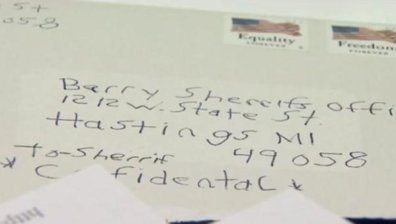 St
058
Equality
FOREVER
Freedom
FOREVER
Barry Sheriffs Offi
1212 W. State St.
Hastings MI
49058
To-Sherrif
* C fidental *
http